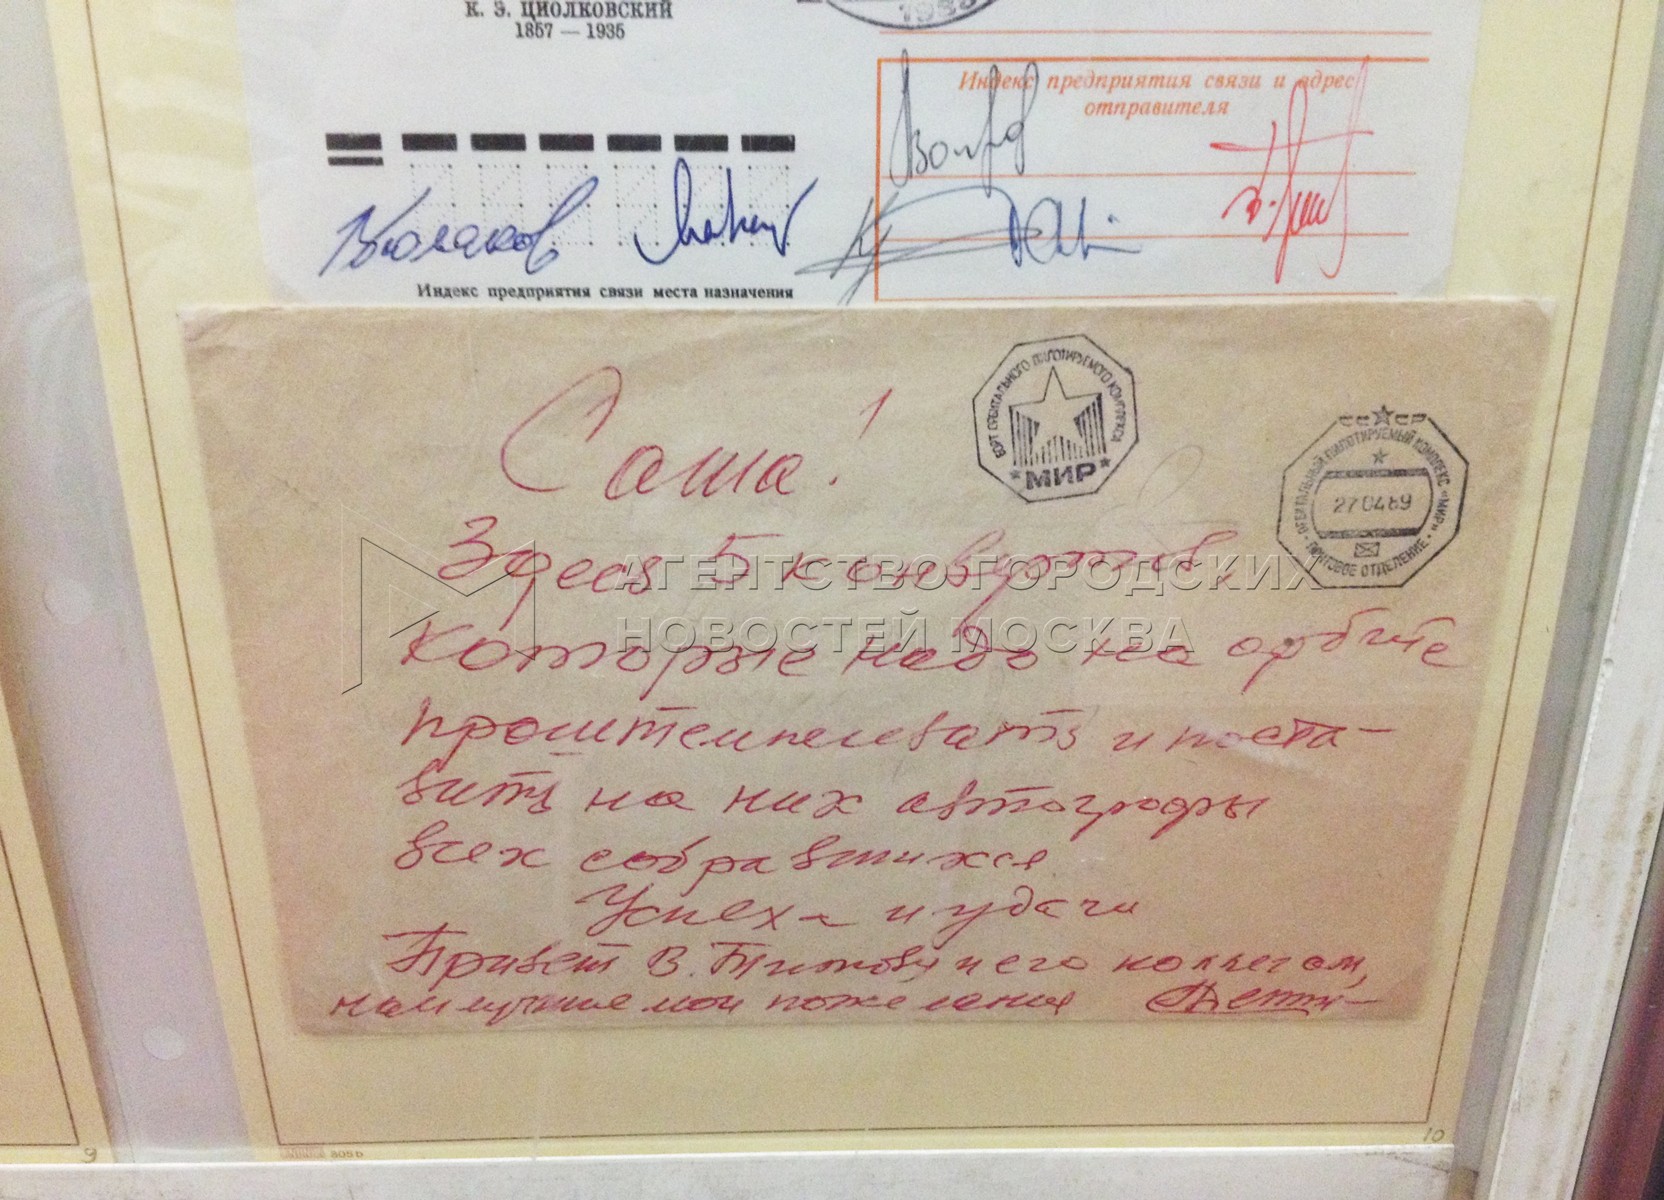 К. Э. ЦИОЛКОВСКИЙ
1857 — 1935
Индекс предприятия связи и адрес
отправителя
Индекс предприятия связи места назначения
БОРТ ОРБИТАЛЬНОГО ПИЛОТИРУЕМОГО КОМПЛЕКСА
МИР
СССР
ОРБИТАЛЬНЫЙ ПИЛОТИРУЕМЫЙ КОМПЛЕКС «МИР»
270489
ПОЧТОВОЕ ОТДЕЛЕНИЕ
Саша!
Здесь 5 конвертов,
которые надо на орбите
проштемпелевать и поста-
вить на них автографы
всех собравшихся
Успеха и удачи
Привет В. Титову и его коллегам,
наилучшие мои пожелания
АГЕНТСТВО ГОРОДСКИХ
НОВОСТЕЙ МОСКВА
9
805Б
10